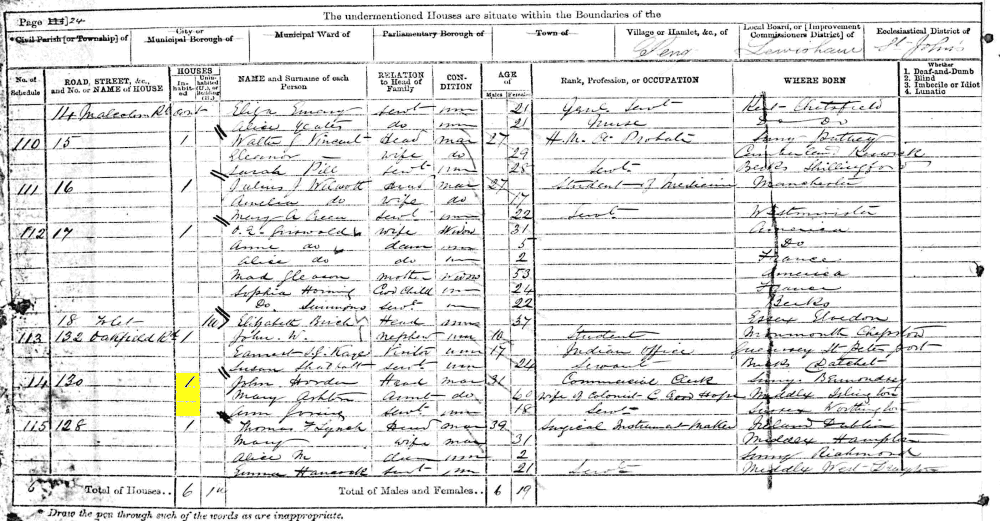 Page 24
The undermentioned Houses are situate within the Boundaries of the
*Civil Parish [or Township] of
City or Municipal Borough of
Municipal Ward of
Parliamentary Borough of
Town of
Village or Hamlet, &c., of
Local Board, or [Improvement Commissioners District] of
Ecclesiastical District of
Lewisham St John's
No. of Schedule
ROAD, STREET, &c., and No. or NAME of HOUSE
HOUSES
In-habit-ed
Unin-habited (U.), or Building (B.)
NAME and Surname of each Person
RELATION to Head of Family
CON-DITION
AGE of
Males Females
Rank, Profession, or OCCUPATION
WHERE BORN
Whether
1. Deaf-and-Dumb
2. Blind
3. Imbecile or Idiot
4. Lunatic
14 Malcolm Rd Eliza Emery Servt un 21 Servt Kent
Alice do un 21 Nurse Do
110 15 1 Walter J Head mar 27 H.M. Ct Probate Putney
Eleanor — wife do 29 Cumberland Keswick
Sarah Pill servt un 28 Servt Berks Shillingford
111 16 1 Julius J Head mar 27 Student of Medicine Manchester
Amelia do wife do 17
Mary A servt un 22 Servt Westminster
112 17 1 Griswold wife 31 America
Anne do daur un 5 Do
Alice do do un 2 France
Mad Gleason mother widow 53 America
Sophia God Child un 24 France
Do Simmons servt un 22 Berks
18 To let 1U Elizabeth Birch Head unm 37 Essex
113 132 Oakfield Rd 1 John W. nephew un 10 Student Monmouth Chepstow
Earnest Visitor unm 17 Indian Office Guernsey St Peters Port
Susan servt un 24 Servant Bucks Datchet
114 130 1 John Head mar 31 Commercial Clerk Surrey Bermondsey
Mary Ashton Aunt do 60 wife of Colonist C. Good Hope Middlex Islington
Ann servt un 18 Servt Sussex Worthing
115 128 1 Thomas F Lynch Head mar 39 Surgical Instrument Maker Ireland Dublin
Mary wife mar 31 Middlex Hampton
Alice M daur un 2 Surrey Richmond
Emma Hancock servt un 21 Servt Middlex West Drayton
6 Total of Houses.. 6 1U Total of Males and Females.. 6 19
* Draw the pen through such of the words as are inappropriate.